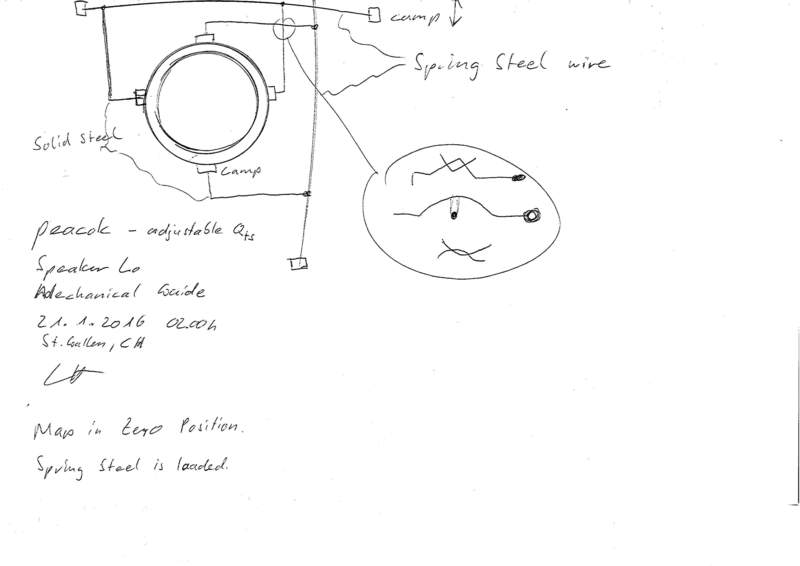 camp
Spring Steel wire
Solid Steel
camp
peacock - adjustable Qts
Speaker Lo
Mechanical Guide
21.1.2016 02.00h
St. Gallen, CH
Mass in Zero Position.
Spring Steel is loaded.